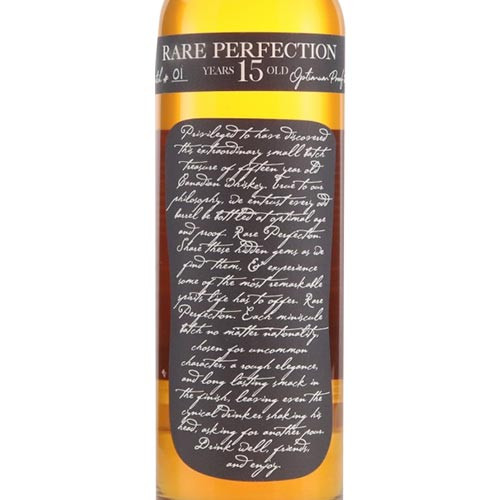 RARE PERFECTION
# 01 YEARS 15 OLD Optimum Proof
Privileged to have discovered
this extraordinary small batch
treasure of fifteen year old
Canadian Whiskey. True to our
philosophy, we entrust every odd
barrel be bottled at optimal age
and proof. Rare Perfection.
Share these hidden gems as we
find them, & experience
some of the most remarkable
spirits life has to offer. Rare
Perfection. Each miniscule
batch no matter nationality,
chosen for uncommon
character, a rough elegance,
and long lasting smack in
the finish, leaving even the
cynical drinker shaking his
head, asking for another pour.
Drink well, friends,
and enjoy.